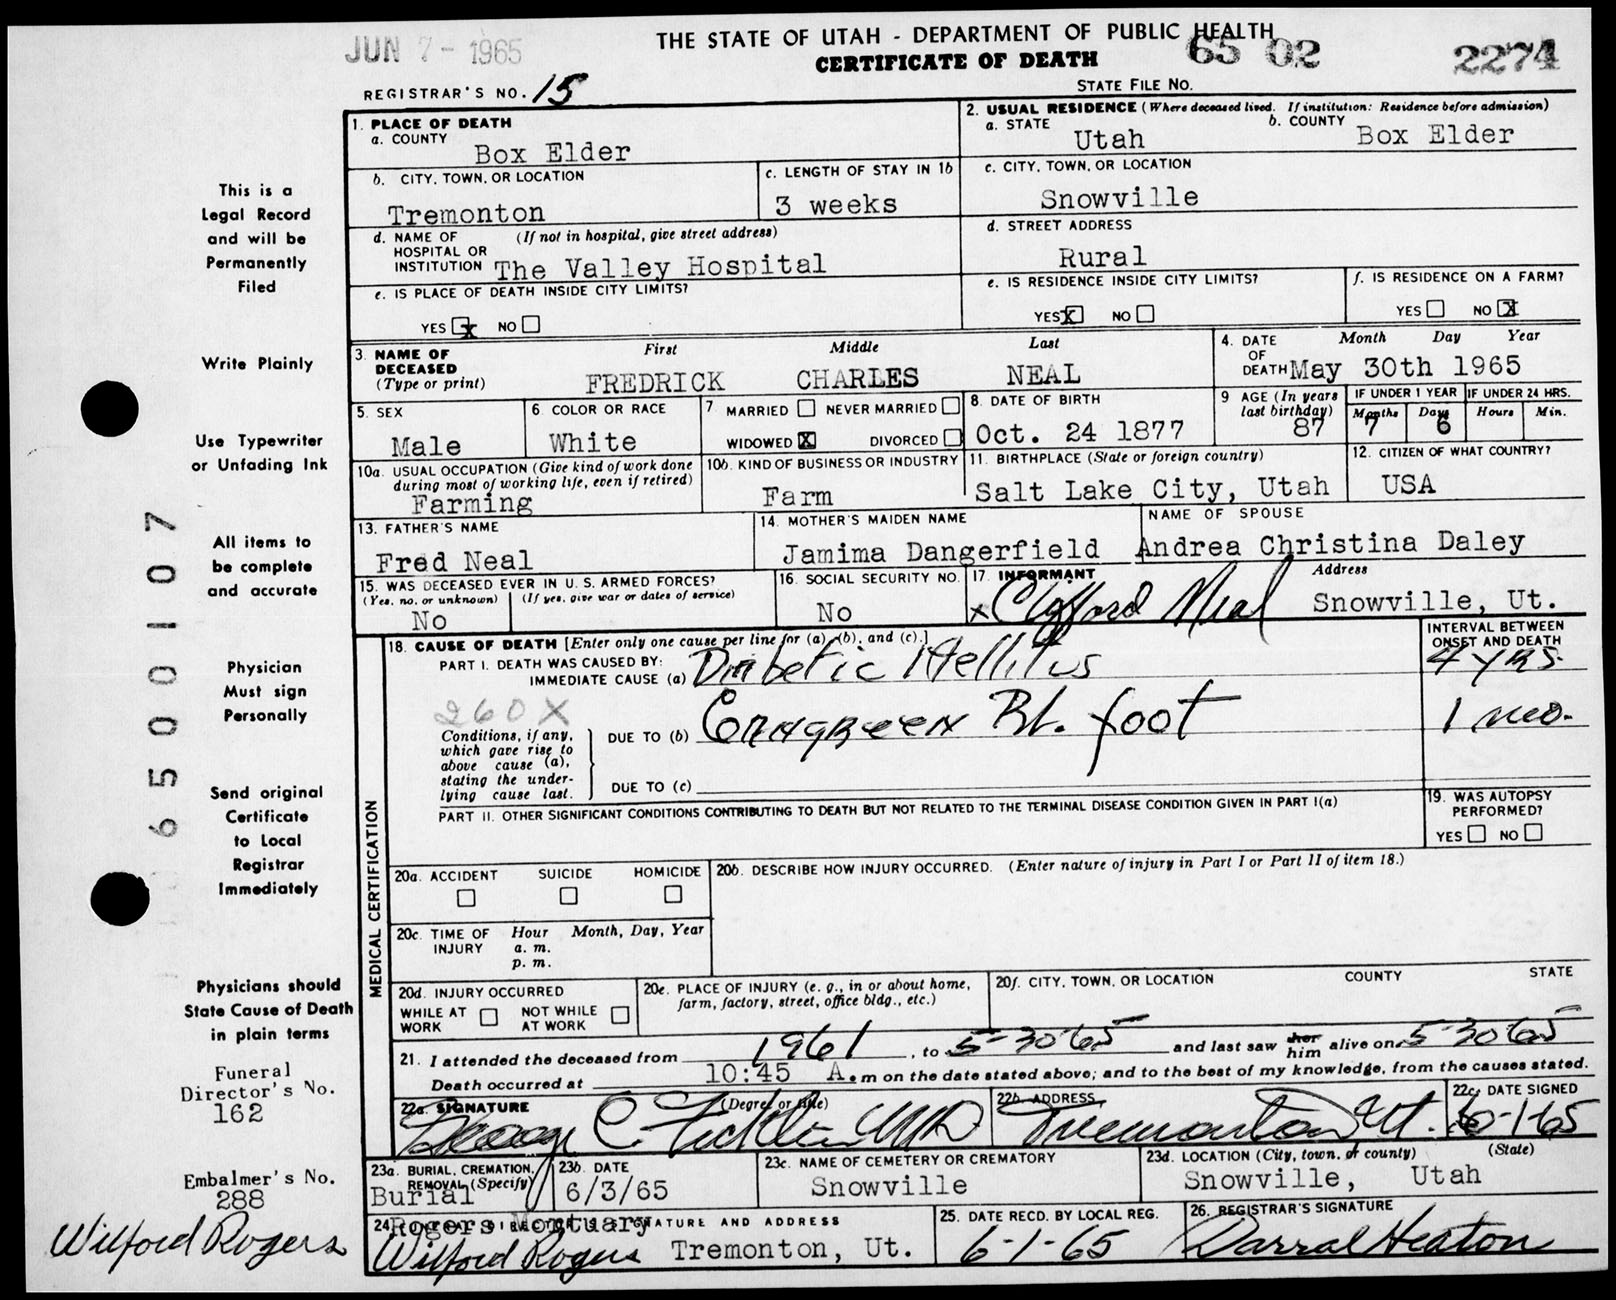 JUN 7 - 1965
THE STATE OF UTAH - DEPARTMENT OF PUBLIC HEALTH
CERTIFICATE OF DEATH
65 02 2274
REGISTRAR'S NO. 15
STATE FILE NO.
1. PLACE OF DEATH
a. COUNTY
Box Elder
2. USUAL RESIDENCE (Where deceased lived. If institution: Residence before admission)
a. STATE Utah
b. COUNTY Box Elder
b. CITY, TOWN, OR LOCATION
Tremonton
c. LENGTH OF STAY IN 1b
3 weeks
c. CITY, TOWN, OR LOCATION
Snowville
d. NAME OF HOSPITAL OR INSTITUTION (If not in hospital, give street address)
The Valley Hospital
d. STREET ADDRESS
Rural
e. IS PLACE OF DEATH INSIDE CITY LIMITS?
YES X NO
e. IS RESIDENCE INSIDE CITY LIMITS?
YES X NO
f. IS RESIDENCE ON A FARM?
YES NO X
3. NAME OF DECEASED (Type or print)
First Middle Last
FREDRICK CHARLES NEAL
4. DATE OF DEATH
Month Day Year
May 30th 1965
5. SEX
Male
6. COLOR OR RACE
White
7. MARRIED NEVER MARRIED
WIDOWED X DIVORCED
8. DATE OF BIRTH
Oct. 24 1877
9 AGE (In years last birthday)
87
IF UNDER 1 YEAR
Months Days
7 6
IF UNDER 24 HRS.
Hours Min.
10a. USUAL OCCUPATION (Give kind of work done during most of working life, even if retired)
Farming
10b. KIND OF BUSINESS OR INDUSTRY
Farm
11. BIRTHPLACE (State or foreign country)
Salt Lake City, Utah
12. CITIZEN OF WHAT COUNTRY?
USA
13. FATHER'S NAME
Fred Neal
14. MOTHER'S MAIDEN NAME
Jamima Dangerfield
NAME OF SPOUSE
Andrea Christina Daley
15. WAS DECEASED EVER IN U.S. ARMED FORCES?
(Yes, no, or unknown) (If yes, give war or dates of service)
No
16. SOCIAL SECURITY NO.
No
17. INFORMANT Address
x Clifford Neal Snowville, Ut.
MEDICAL CERTIFICATION
18. CAUSE OF DEATH [Enter only one cause per line for (a), (b), and (c).]
INTERVAL BETWEEN ONSET AND DEATH
PART I. DEATH WAS CAUSED BY:
IMMEDIATE CAUSE (a) Diabetic Mellitus 4 yrs.
260X
Conditions, if any, which gave rise to above cause (a), stating the underlying cause last.
DUE TO (b) Gangreen Rt. foot 1 mo.
DUE TO (c)
PART II. OTHER SIGNIFICANT CONDITIONS CONTRIBUTING TO DEATH BUT NOT RELATED TO THE TERMINAL DISEASE CONDITION GIVEN IN PART I(a)
19. WAS AUTOPSY PERFORMED?
YES NO
20a. ACCIDENT SUICIDE HOMICIDE
20b. DESCRIBE HOW INJURY OCCURRED. (Enter nature of injury in Part I or Part II of item 18.)
20c. TIME OF INJURY Hour Month, Day, Year
a. m.
p. m.
20d. INJURY OCCURRED
WHILE AT WORK NOT WHILE AT WORK
20e. PLACE OF INJURY (e. g., in or about home, farm, factory, street, office bldg., etc.)
20f. CITY, TOWN, OR LOCATION COUNTY STATE
21. I attended the deceased from 1961, to 5-30-65 and last saw her him alive on 5-30-65
Death occurred at 10:45 A. m on the date stated above; and to the best of my knowledge, from the causes stated.
22a. SIGNATURE (Degree or title)
George C. Ficklin MD
22b. ADDRESS
Tremonton Ut.
22c. DATE SIGNED
6-1-65
23a. BURIAL, CREMATION, REMOVAL (Specify)
Burial
23b. DATE
6/3/65
23c. NAME OF CEMETERY OR CREMATORY
Snowville
23d. LOCATION (City, town, or county) (State)
Snowville, Utah
24. FUNERAL DIRECTOR'S SIGNATURE AND ADDRESS
Rogers Mortuary
Wilford Rogers Tremonton, Ut.
25. DATE RECD. BY LOCAL REG.
6-1-65
26. REGISTRAR'S SIGNATURE
Darral Heaton
This is a
Legal Record
and will be
Permanently
Filed
Write Plainly
Use Typewriter
or Unfading Ink
All items to
be complete
and accurate
Physician
Must sign
Personally
Send original
Certificate
to Local
Registrar
Immediately
Physicians should
State Cause of Death
in plain terms
Funeral
Director's No.
162
Embalmer's No.
288
Wilford Rogers
6500107